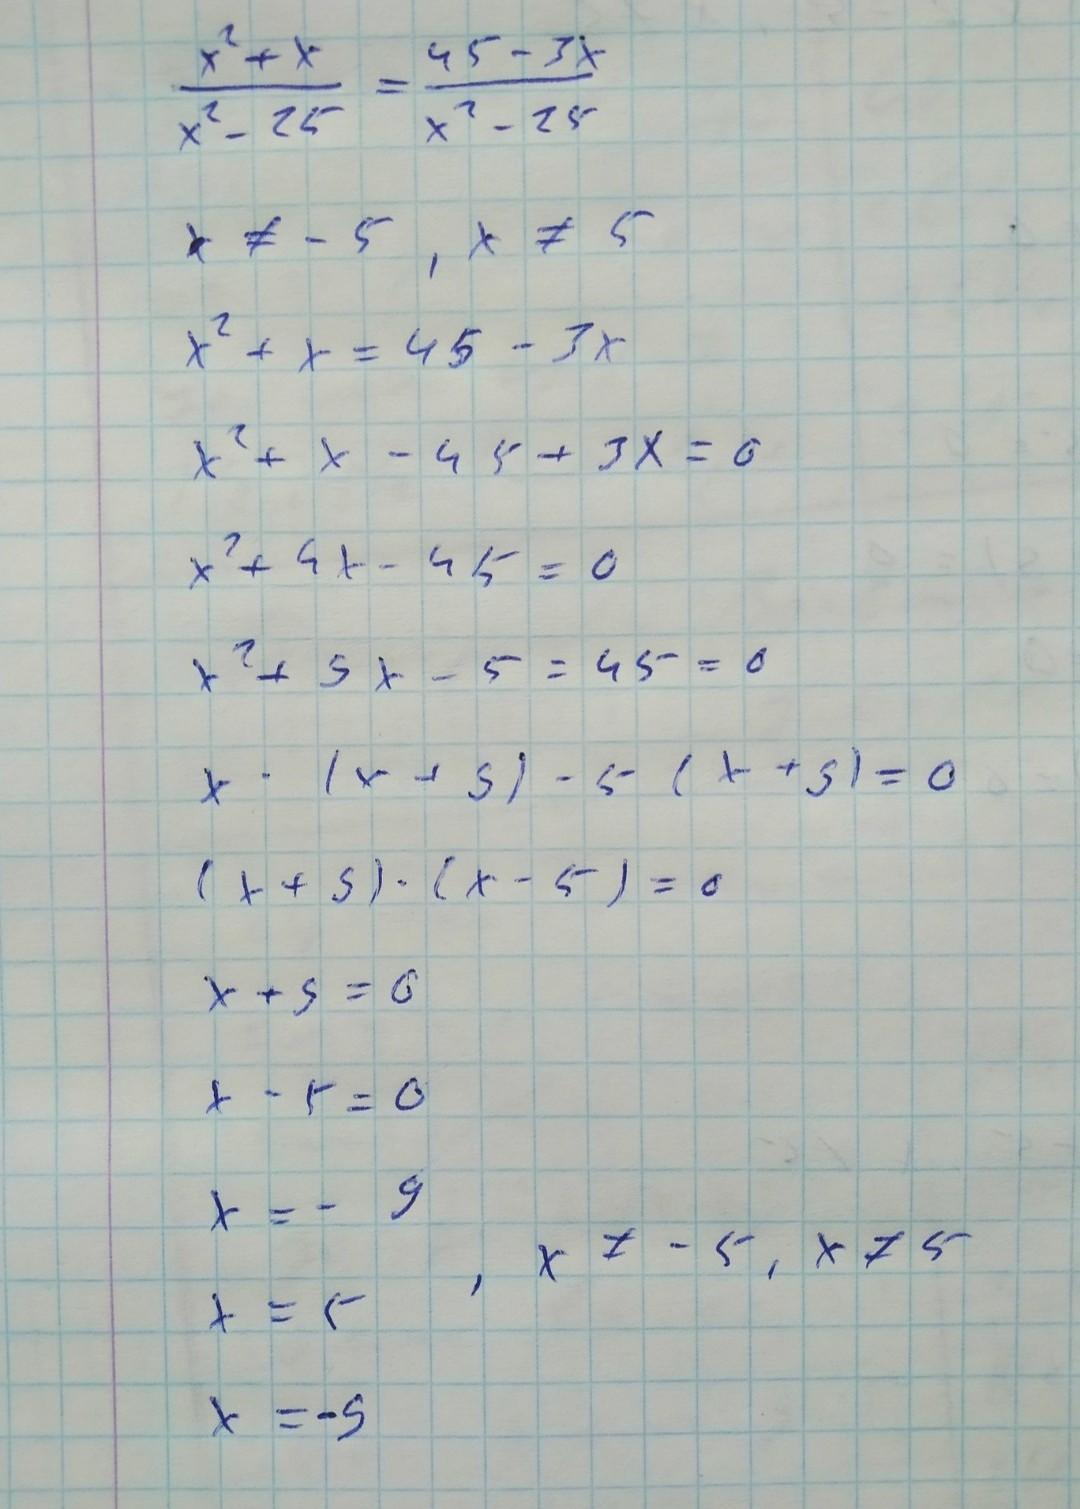 (x² + x)/(x² - 25) = (45 - 3x)/(x² - 25)
x ≠ - 5 , x ≠ 5
x² + x = 45 - 3x
x² + x - 45 + 3x = 0
x² + 4x - 45 = 0
x² + 9x - 5 = 45 = 0
x · (x + 9) - 5 (x + 9) = 0
(x + 9) · (x - 5) = 0
x + 9 = 0
x - 5 = 0
x = - 9
, x ≠ - 5, x ≠ 5
x = 5
x = -9